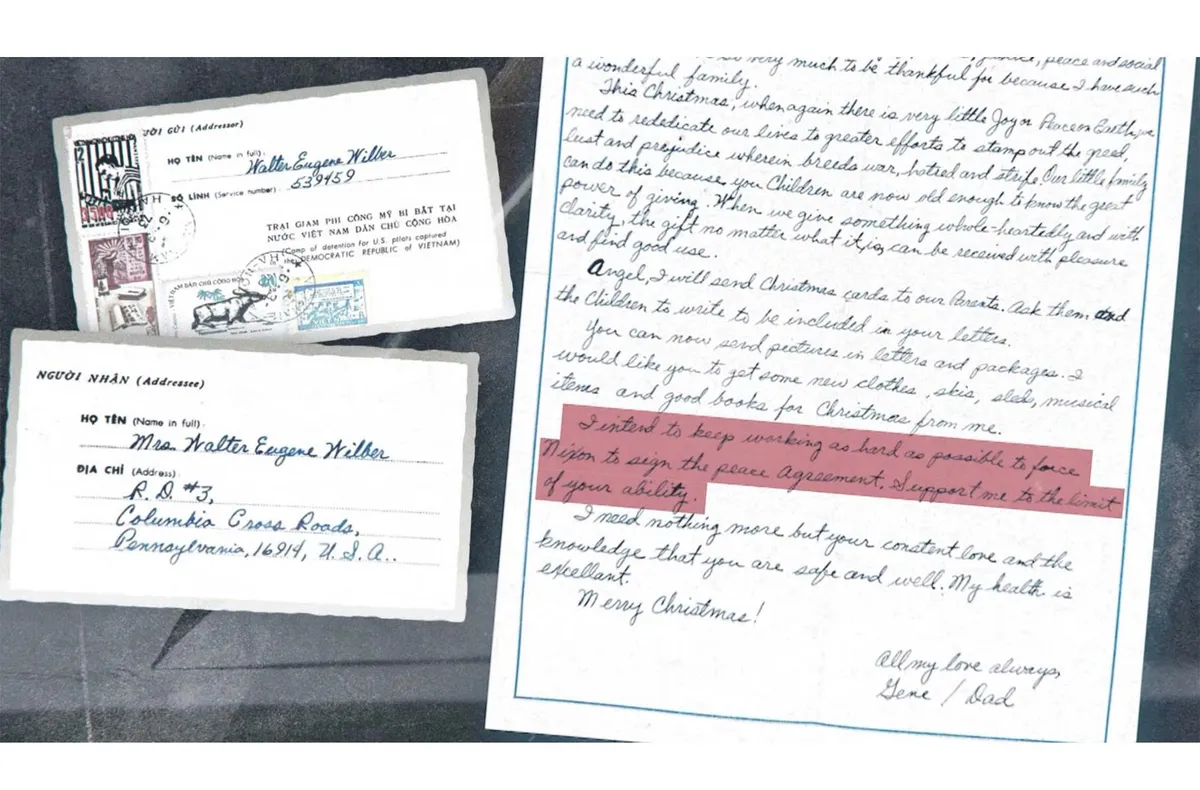 NGƯỜI GỬI (Addressor)
HỌ TÊN (Name in full):
Walter Eugene Wilber
SỐ LÍNH (Service number)
539459
TRẠI GIAM PHI CÔNG MỸ BỊ BẮT TẠI
NƯỚC VIỆT NAM DÂN CHỦ CỘNG HÒA
(Camp of detention for U.S. pilots captured
in the DEMOCRATIC REPUBLIC of VIETNAM)
NGƯỜI NHẬN (Addressee)
HỌ TÊN (Name in full):
Mrs. Walter Eugene Wilber
ĐỊA CHỈ (Address)
R.D. #3,
Columbia Cross Roads,
Pennsylvania, 16914, U.S.A..
peace and social
very much to be thankful for because I have such
a wonderful family.
This Christmas, when again there is very little Joy or Peace on Earth, we
need to rededicate our lives to greater efforts to stamp out the greed,
lust and prejudice wherein breeds war, hatred and strife. Our little family
can do this because you Children are now old enough to know the great
power of giving. When we give something whole-heartably and with
clarity, the gift no matter what it is, can be received with pleasure
and find good use.
Angel, I will send Christmas cards to our Parents. Ask them and
the Children to write to be included in your letters.
You can now send pictures in letters and packages. I
would like you to get some new clothes, skis, sled, musical
items and good books for Christmas from me.
I intend to keep working as hard as possible to force
Nixon to sign the peace Agreement. Support me to the limit
of your ability.
I need nothing more but your constent love and the
knowledge that you are safe and well. My health is
excellant.
Merry Christmas!
All my love always,
Gene / Dad